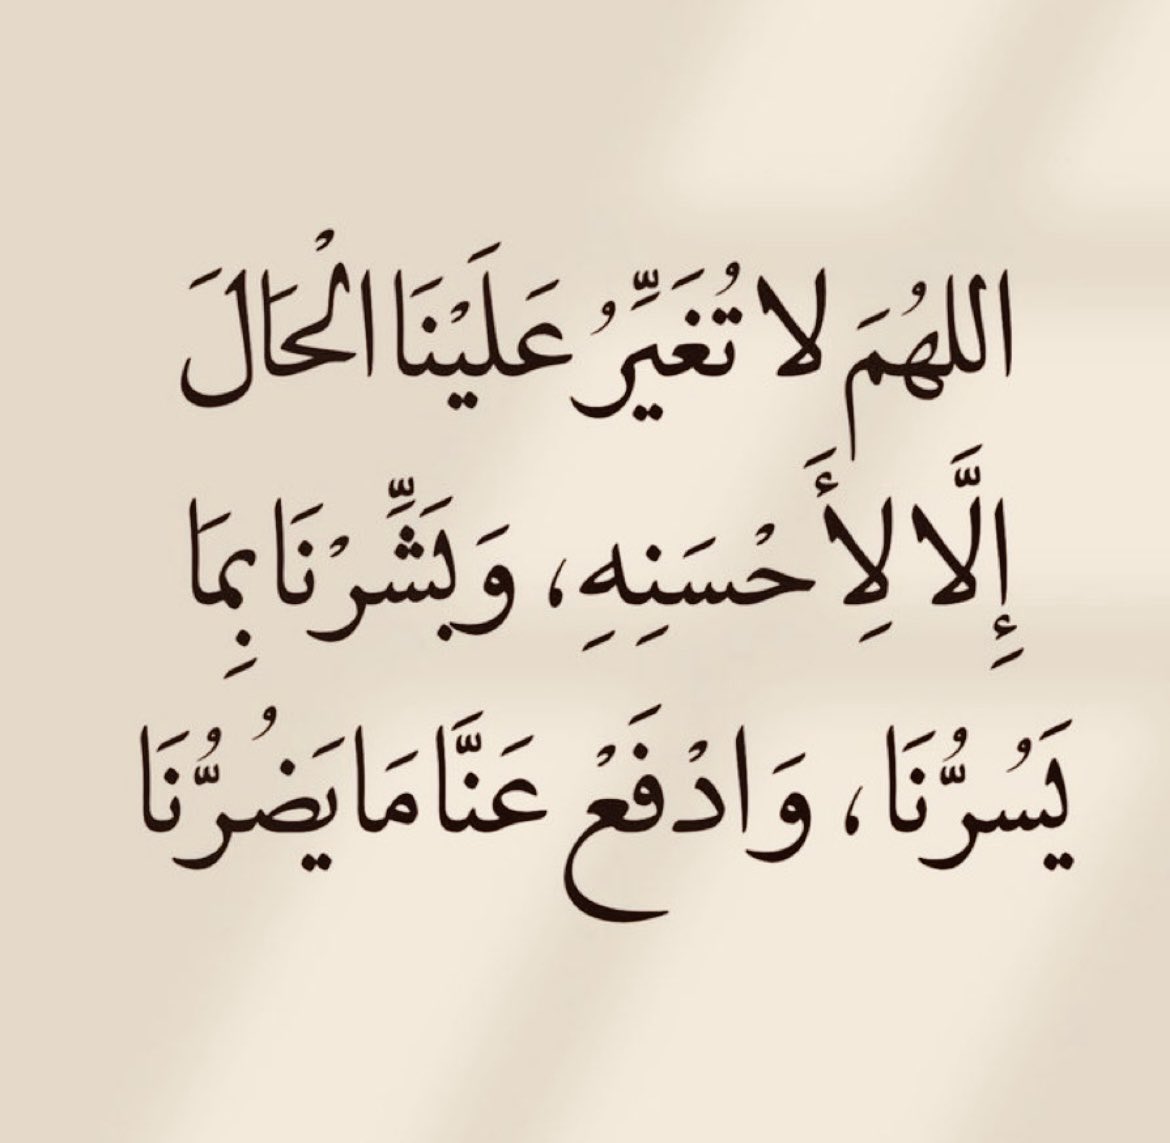 اللهُمَ لا تُغَيِّرُ عَلَيْنَا الْحَالَ
إِلَّا لِأَحْسَنِهِ، وَبَشِّرْنَا بِمَا
يَسُرُّنَا، وَادْفَعْ عَنَّا مَا يَضُرُّنَا